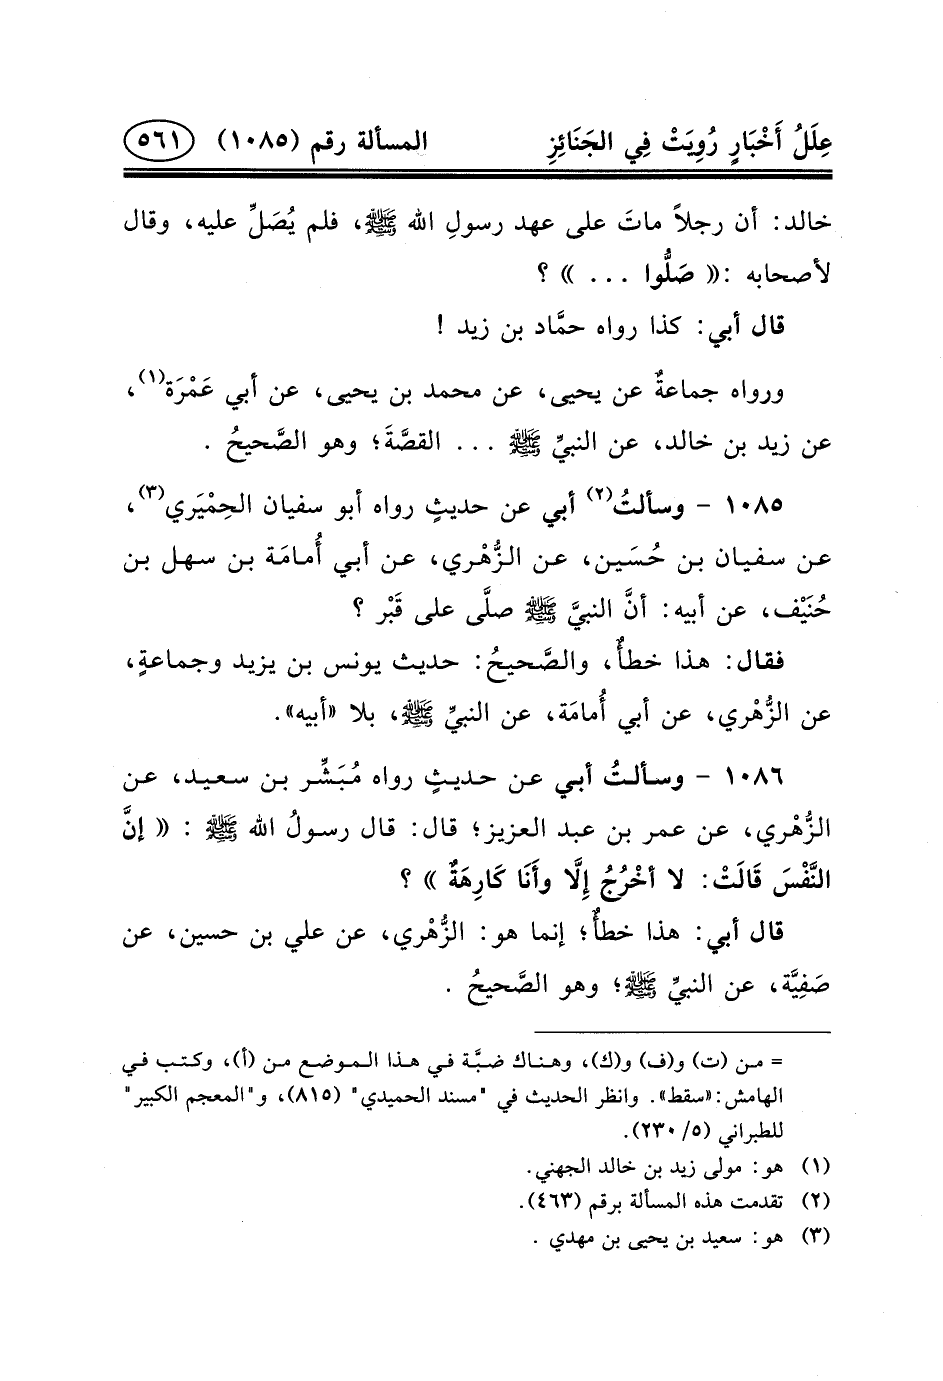 عِلَلُ أَخْبَارٍ رُوِيَتْ فِي الجَنَائِزِ المسألة رقم (١٠٨٥) ٥٦١
خالد: أن رجلاً ماتَ على عهد رسولِ الله ﷺ، فلم يُصَلِّ عليه، وقال
لأصحابه :« صَلُّوا ... » ؟
قال أبي: كذا رواه حمَّاد بن زيد !
ورواه جماعةٌ عن يحيى، عن محمد بن يحيى، عن أبي عَمْرَة(١)،
عن زيد بن خالد، عن النبيِّ ﷺ ... القصَّةَ؛ وهو الصَّحيحُ .
١٠٨٥ - وسألتُ(٢) أبي عن حديثٍ رواه أبو سفيان الحِمْيَري(٣)،
عن سفيان بن حُسَين، عن الزُّهْري، عن أبي أُمامَة بن سهل بن
حُنَيْف، عن أبيه: أنَّ النبيَّ ﷺ صلَّى على قَبْر ؟
فقال: هذا خطأٌ، والصَّحيحُ: حديث يونس بن يزيد وجماعةٍ،
عن الزُّهْري، عن أبي أُمامَة، عن النبيِّ ﷺ، بلا «أبيه».
١٠٨٦ - وسألتُ أبي عن حديثٍ رواه مُبَشِّر بن سعيد، عن
الزُّهْري، عن عمر بن عبد العزيز؛ قال: قال رسولُ الله ﷺ : « إنَّ
النَّفْسَ قَالَتْ: لا أخْرُجُ إِلَّا وأَنَا كَارِهَةٌ » ؟
قال أبي: هذا خطأٌ؛ إنما هو: الزُّهْري، عن علي بن حسين، عن
صَفِيَّة، عن النبيِّ ﷺ؛ وهو الصَّحيحُ .
= من (ت) و(ف) و(ك)، وهناك ضبَّة في هذا الموضع من (أ)، وكتب في
الهامش:«سقط». وانظر الحديث في "مسند الحميدي" (٨١٥)، و"المعجم الكبير"
للطبراني (٥/ ٢٣٠).
(١) هو: مولى زيد بن خالد الجهني.
(٢) تقدمت هذه المسألة برقم (٤٦٣).
(٣) هو: سعيد بن يحيى بن مهدي .